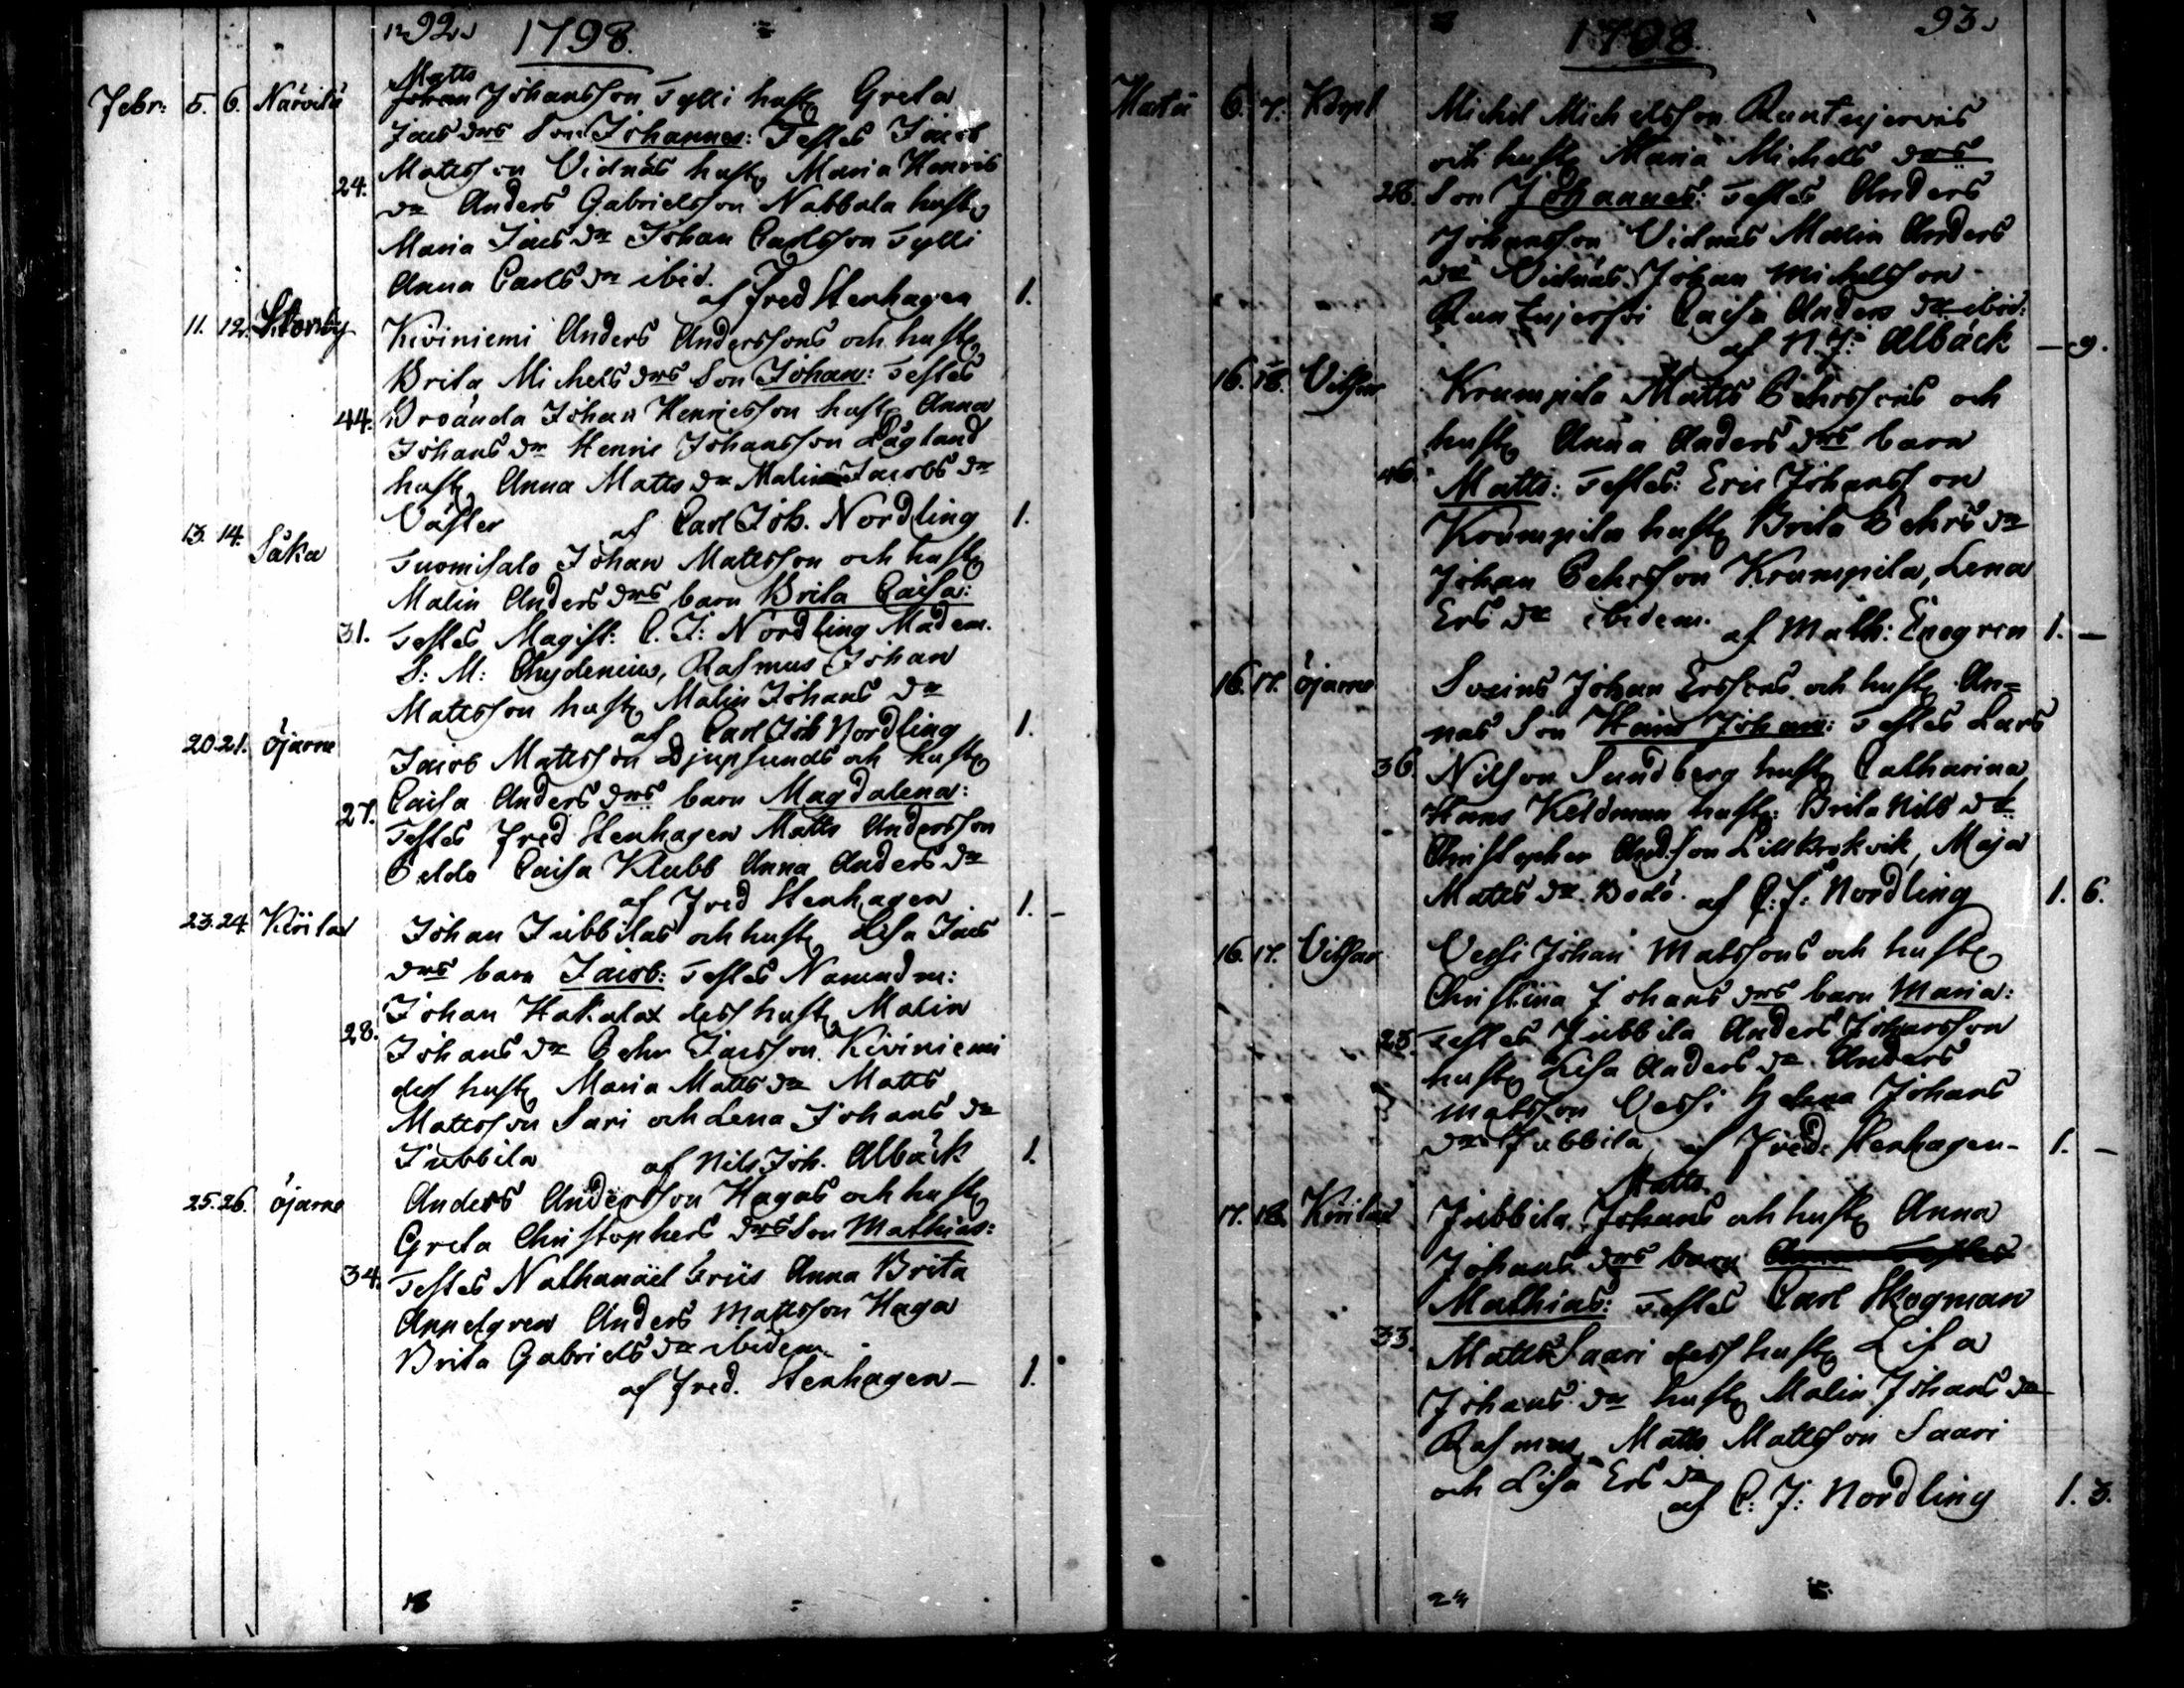 92. 1798.
Matts
Febr: 5. 6. Närvilä Johan Johansson Tylli hust. Greta
Jacs drs Son Johannes: Testes Jacob
Mattsson Vidnäs hust. Maria Henrics
24. dr Anders Gabrielsson Nabbala hust.
Maria Jacs dr Johan Carlsson Tylli
Anna Carls dr ibid.
af Fred Stenhagen 1.
11. 12. Storby Kiviniemi Anders Anderssons och hust.
Brita Michels drs Son Johan: Testes
44. Broända Johan Henricsson hust. Anna
Johans dr Henric Johansson Lågland
hust. Anna Matts dr Malin Jacobs dr
Väster af Carl Joh. Nordling 1.
13. 14. Såka Tuomisalo Johan Mattsson och hust.
Malin Anders drs barn Brita Caisa:
31. Testes Magist: C. J: Nordling Madem.
S: M: Chydenius, Rasmus Johan
Mattsson hust. Malin Johans dr
af Carl Joh Nordling 1.
20. 21. Öjarne Jacob Mattsson Djupsunds och hust.
27. Caisa Anders drs barn Magdalena:
Testes Fred Stenhagen Matts Andersson
Peldo Caisa Klubb Anna Anders dr
af Fred Stenhagen 1. -
23. 24. Kirilax Johan Jubbilas och hust. Lisa Jacs
drs barn Jacob: Testes Namndm:
Johan Hakalax dess hust. Malin
28. Johans dr Pehr Jacsson Kiviniemi
dess hust. Maria Matts dr Matts
Mattsson Sari och Lena Johans dr
Jubbila af Nils Joh. Albäck 1.
25. 26. Öjarne Anders Andersson Hagas och hust.
Greta Christophers drs Son Mathias:
34. Testes Nathanäel Criis Anna Brita
Appelgren Anders Mattsson Haga
Brita Gabriels dr ibidem.
af Fred. Stenhagen - 1.
1798. 93.
Martii 6. 7. Korpl Michel Michelsson Runtujervis
och hust. Maria Michels drs
28. Son Johannes: Testes Anders
Johansson Vidnäs Malin Anders
dr Vidnäs Johan Michelsson
Runtujerfvi Caisa Anders dr ibid:
af N J: Albäck - 9.
16. 18. Vitsar Krumpila Matts Pehrssons och
hust. Anna Anders drs barn
46. Matts: Testes: Eric Johansson
Krumpila hust. Brita Pehrs dr
Johan Pehrsson Krumpila, Lena
Ers dr ibidem. af Math: Enegren 1. -
16. 17. Öjarne Sveins Johan Erssons och hust. An=
nas Son Hans Johan: Testes Lars
36. Nilsson Sundberg hust. Catharina,
Hans Keldman hust: Brita Nils dr
Christopher And.son Lillkrokvik, Maja
Matts dr Bodö af C: J: Nordling 1. 6.
16. 17. Vitsar Vessi Johan Matssons och hust.
Christina Johans drs barn Maria:
25. Testes Jubbila Anders Johansson
hust. Lisa Anders dr Anders
Matsson Vessi Helena Johans
dr Jubbila af Fred: Stenhagen - 1. -
Matts
17. 18. Kirilax Jubbila Johans och hust. Anna
Johans drs barn
Mathias: Testes Carl Skogman
33. Matts Saari dess hust. Lisa
Johans dr hust. Malin Johans dr
Rasmus, Matts Mattsson Saari
och Lisa Ers dr
af C: J: Nordling 1. 3.